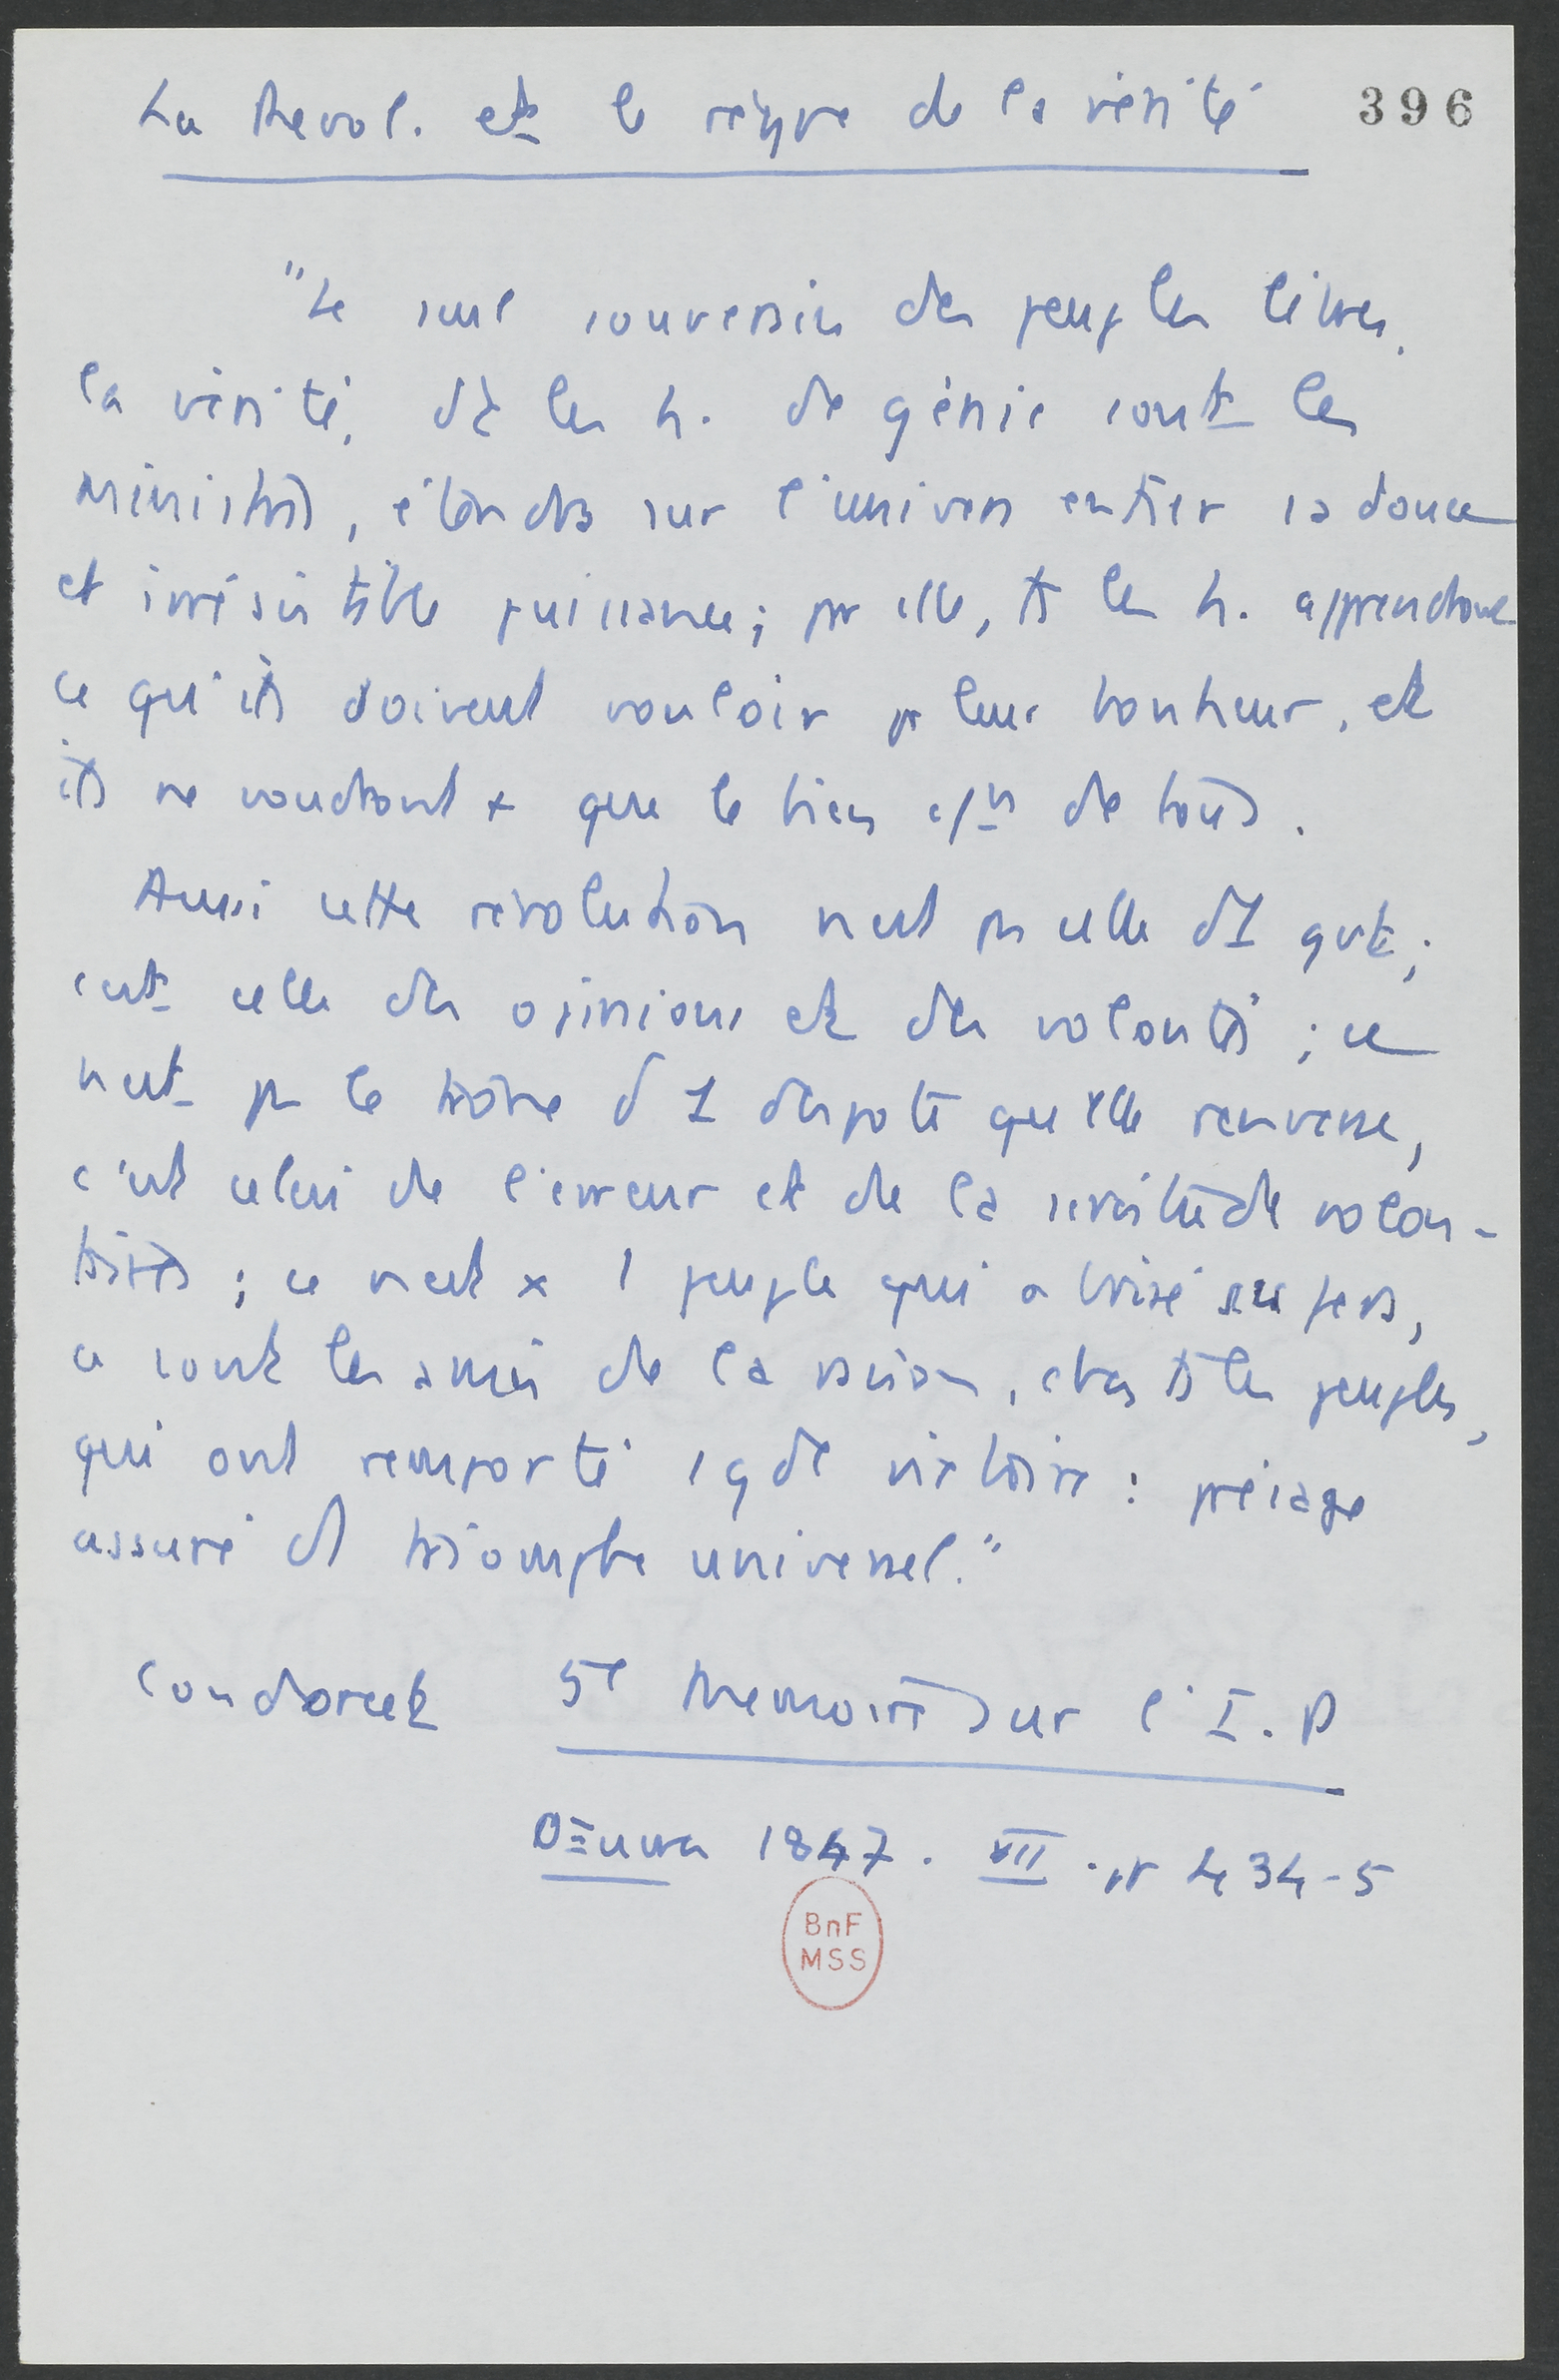 La Revol. et le règne de la vérité 396
"Le seul souverain des peuples libres,
la vérité, dt les h. de génie sont les
ministres, étendra sur l'univers entier sa douce
et irrésistible puissance ; par elle, ts les h. apprendront
ce qu'ils doivent vouloir pr leur bonheur, et
ils ne voudront + que le bien c/n de tous.
Aussi cette révolution n'est pas celle d'1 gvt ;
c'est celle des opinions et des volontés ; ce
n'est pas le trône d'1 despote qu'elle renverse,
c'est celui de l'erreur et de la servitude volon-
taires ; ce n'est x 1 peuple qui a brisé ses fers,
ce sont les amis de la raison, chez ts les peuples,
qui ont remporté 1 gde victoire : présage
assuré d'1 triomphe universel."
Condorcet 5e Memoire sur l'I.P
Œuvres 1847. VII. pp 434-5
BnF
MSS